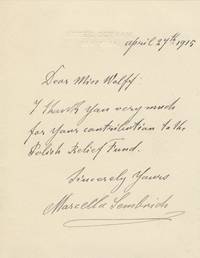 april 27th 1915
Dear Miss Wolff:
I thank you very much
for your contribution to the
Polish Relief Fund.
Sincerely Yours
Marcella Sembrich